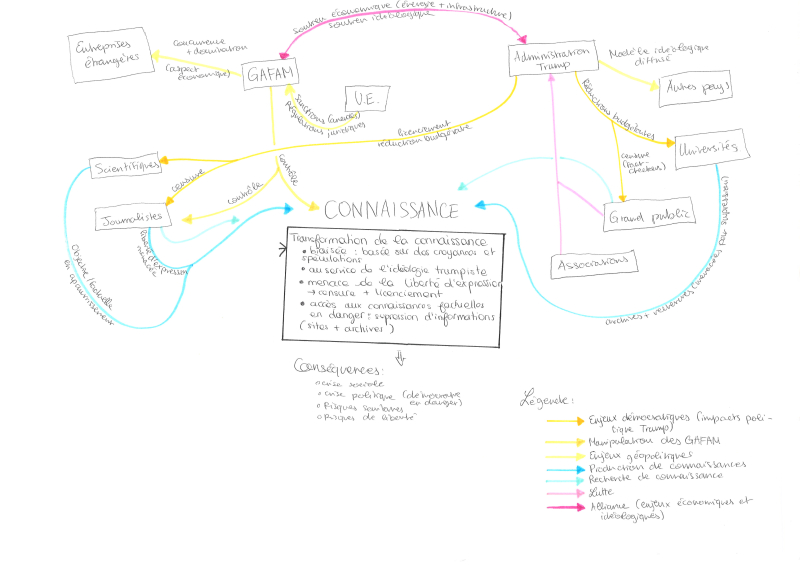 soutien économique (énergie + infrastructure)
soutien idéologique
Entreprises
étrangères
concurrence
+ domination
(aspect
économique)
GAFAM
Administration
Trump
Modèle idéologique
diffusé
Autres pays
U.E.
sanctions (amendes)
Régulations juridiques
Réductions budgétaires
licenciement
réduction budgétaire
Universités
censure
(fact-
checkers)
Scientifiques
censure
contrôle
contrôle
Journalistes
CONNAISSANCE
Grand public
liberté d'expression
menacée
Associations
Objective / factuelle
en appauvrissement
archives + recherches
Transformation de la connaissance
• biaisée : basée sur des croyances et
spéculations
• au service de l'idéologie trumpiste
• menace de la liberté d'expression
→ censure + licenciement
• accès aux connaissances factuelles
en danger : supression d'informations
(sites + archives)
Conséquences :
crise sociale
crise politique (démocratie
en danger)
Risques sanitaires
Risques de liberté
Légende :
Enjeux démocratiques (impacts poli-
tique Trump)
Manipulation des GAFAM
Enjeux géopolitiques
Production de connaissances
Recherche de connaissance
Lutte
Alliance (enjeux économiques et
idéologiques)